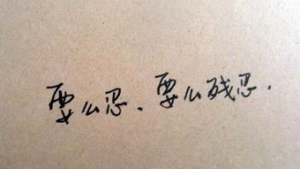 要么忍、要么残忍.